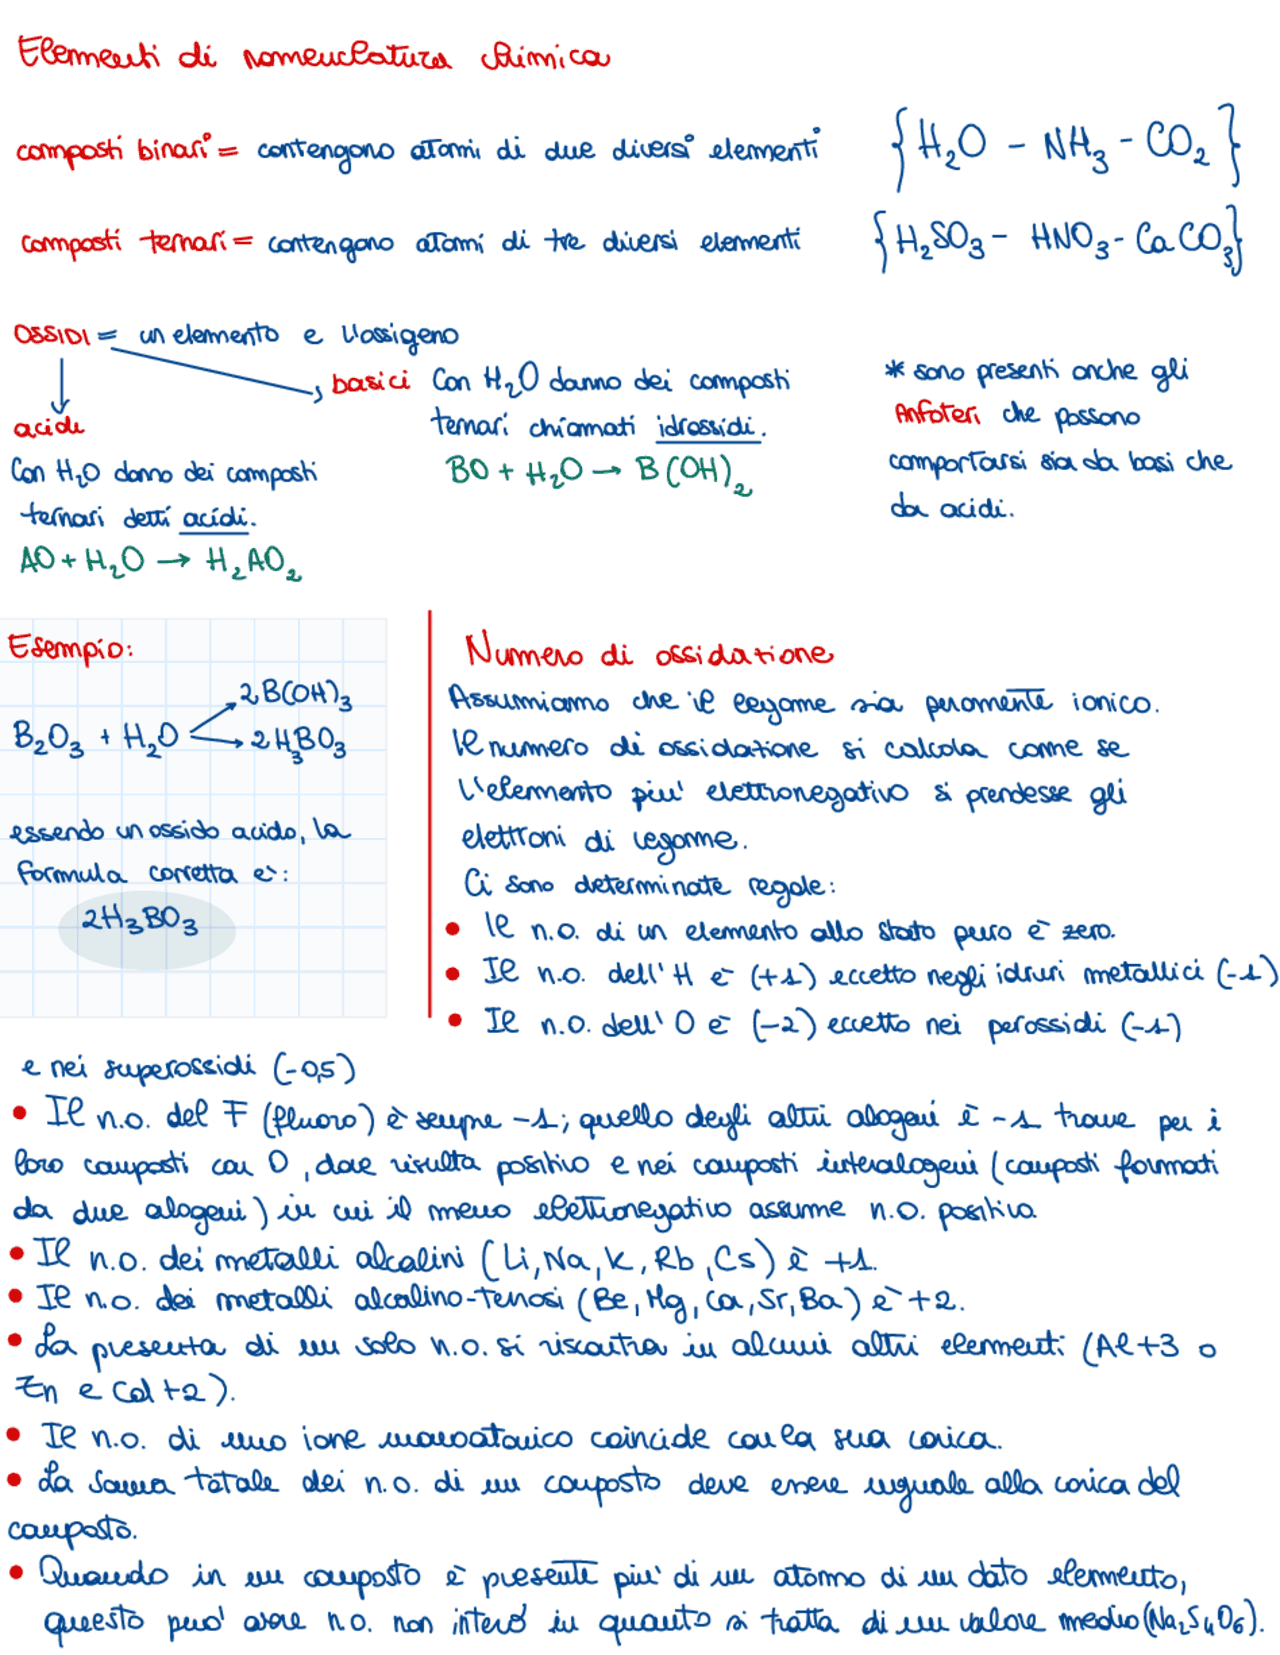 Elementi di nomenclatura chimica
composti binari = contengono atomi di due diversi elementi {H₂O - NH₃ - CO₂}
composti ternari = contengono atomi di tre diversi elementi {H₂SO₃ - HNO₃ - CaCO₃}
OSSIDI = un elemento e l'ossigeno
basici Con H₂O danno dei composti
ternari chiamati idrossidi.
BO + H₂O → B(OH)₂
* sono presenti anche gli
Anfoteri che possono
comportarsi sia da basi che
da acidi.
acidi
Con H₂O danno dei composti
ternari detti acidi.
AO + H₂O → H₂AO₂
Esempio:
2B(OH)₃
B₂O₃ + H₂O → 2H₃BO₃
essendo un ossido acido, la
formula corretta è:
2H₃BO₃
Numero di ossidazione
Assumiamo che il legame sia puramente ionico.
Il numero di ossidazione si calcola come se
l'elemento piu' elettronegativo si prendesse gli
elettroni di legame.
Ci sono determinate regole:
• Il n.o. di un elemento allo stato puro è zero.
• Il n.o. dell'H è (+1) eccetto negli idruri metallici (-1)
• Il n.o. dell'O è (-2) eccetto nei perossidi (-1)
e nei superossidi (-0,5)
• Il n.o. del F (fluoro) è sempre -1; quello degli altri alogeni è -1 trane per i
loro composti con O, dove risulta positivo e nei composti interalogeni (composti formati
da due alogeni) in cui il meno elettronegativo assume n.o. positivo.
• Il n.o. dei metalli alcalini (Li, Na, K, Rb, Cs) è +1.
• Il n.o. dei metalli alcalino-terrosi (Be, Mg, Ca, Sr, Ba) è +2.
• La presenza di un solo n.o. si riscontra in alcuni altri elementi (Al+3 o
Zn e Cd +2).
• Il n.o. di uno ione monoatomico coincide con la sua carica.
• La somma totale dei n.o. di un composto deve essere uguale alla carica del
composto.
• Quando in un composto è presente piu' di un atomo di un dato elemento,
questo puo' avere n.o. non intero in quanto si tratta di un valore medio (Na₂S₄O₆).